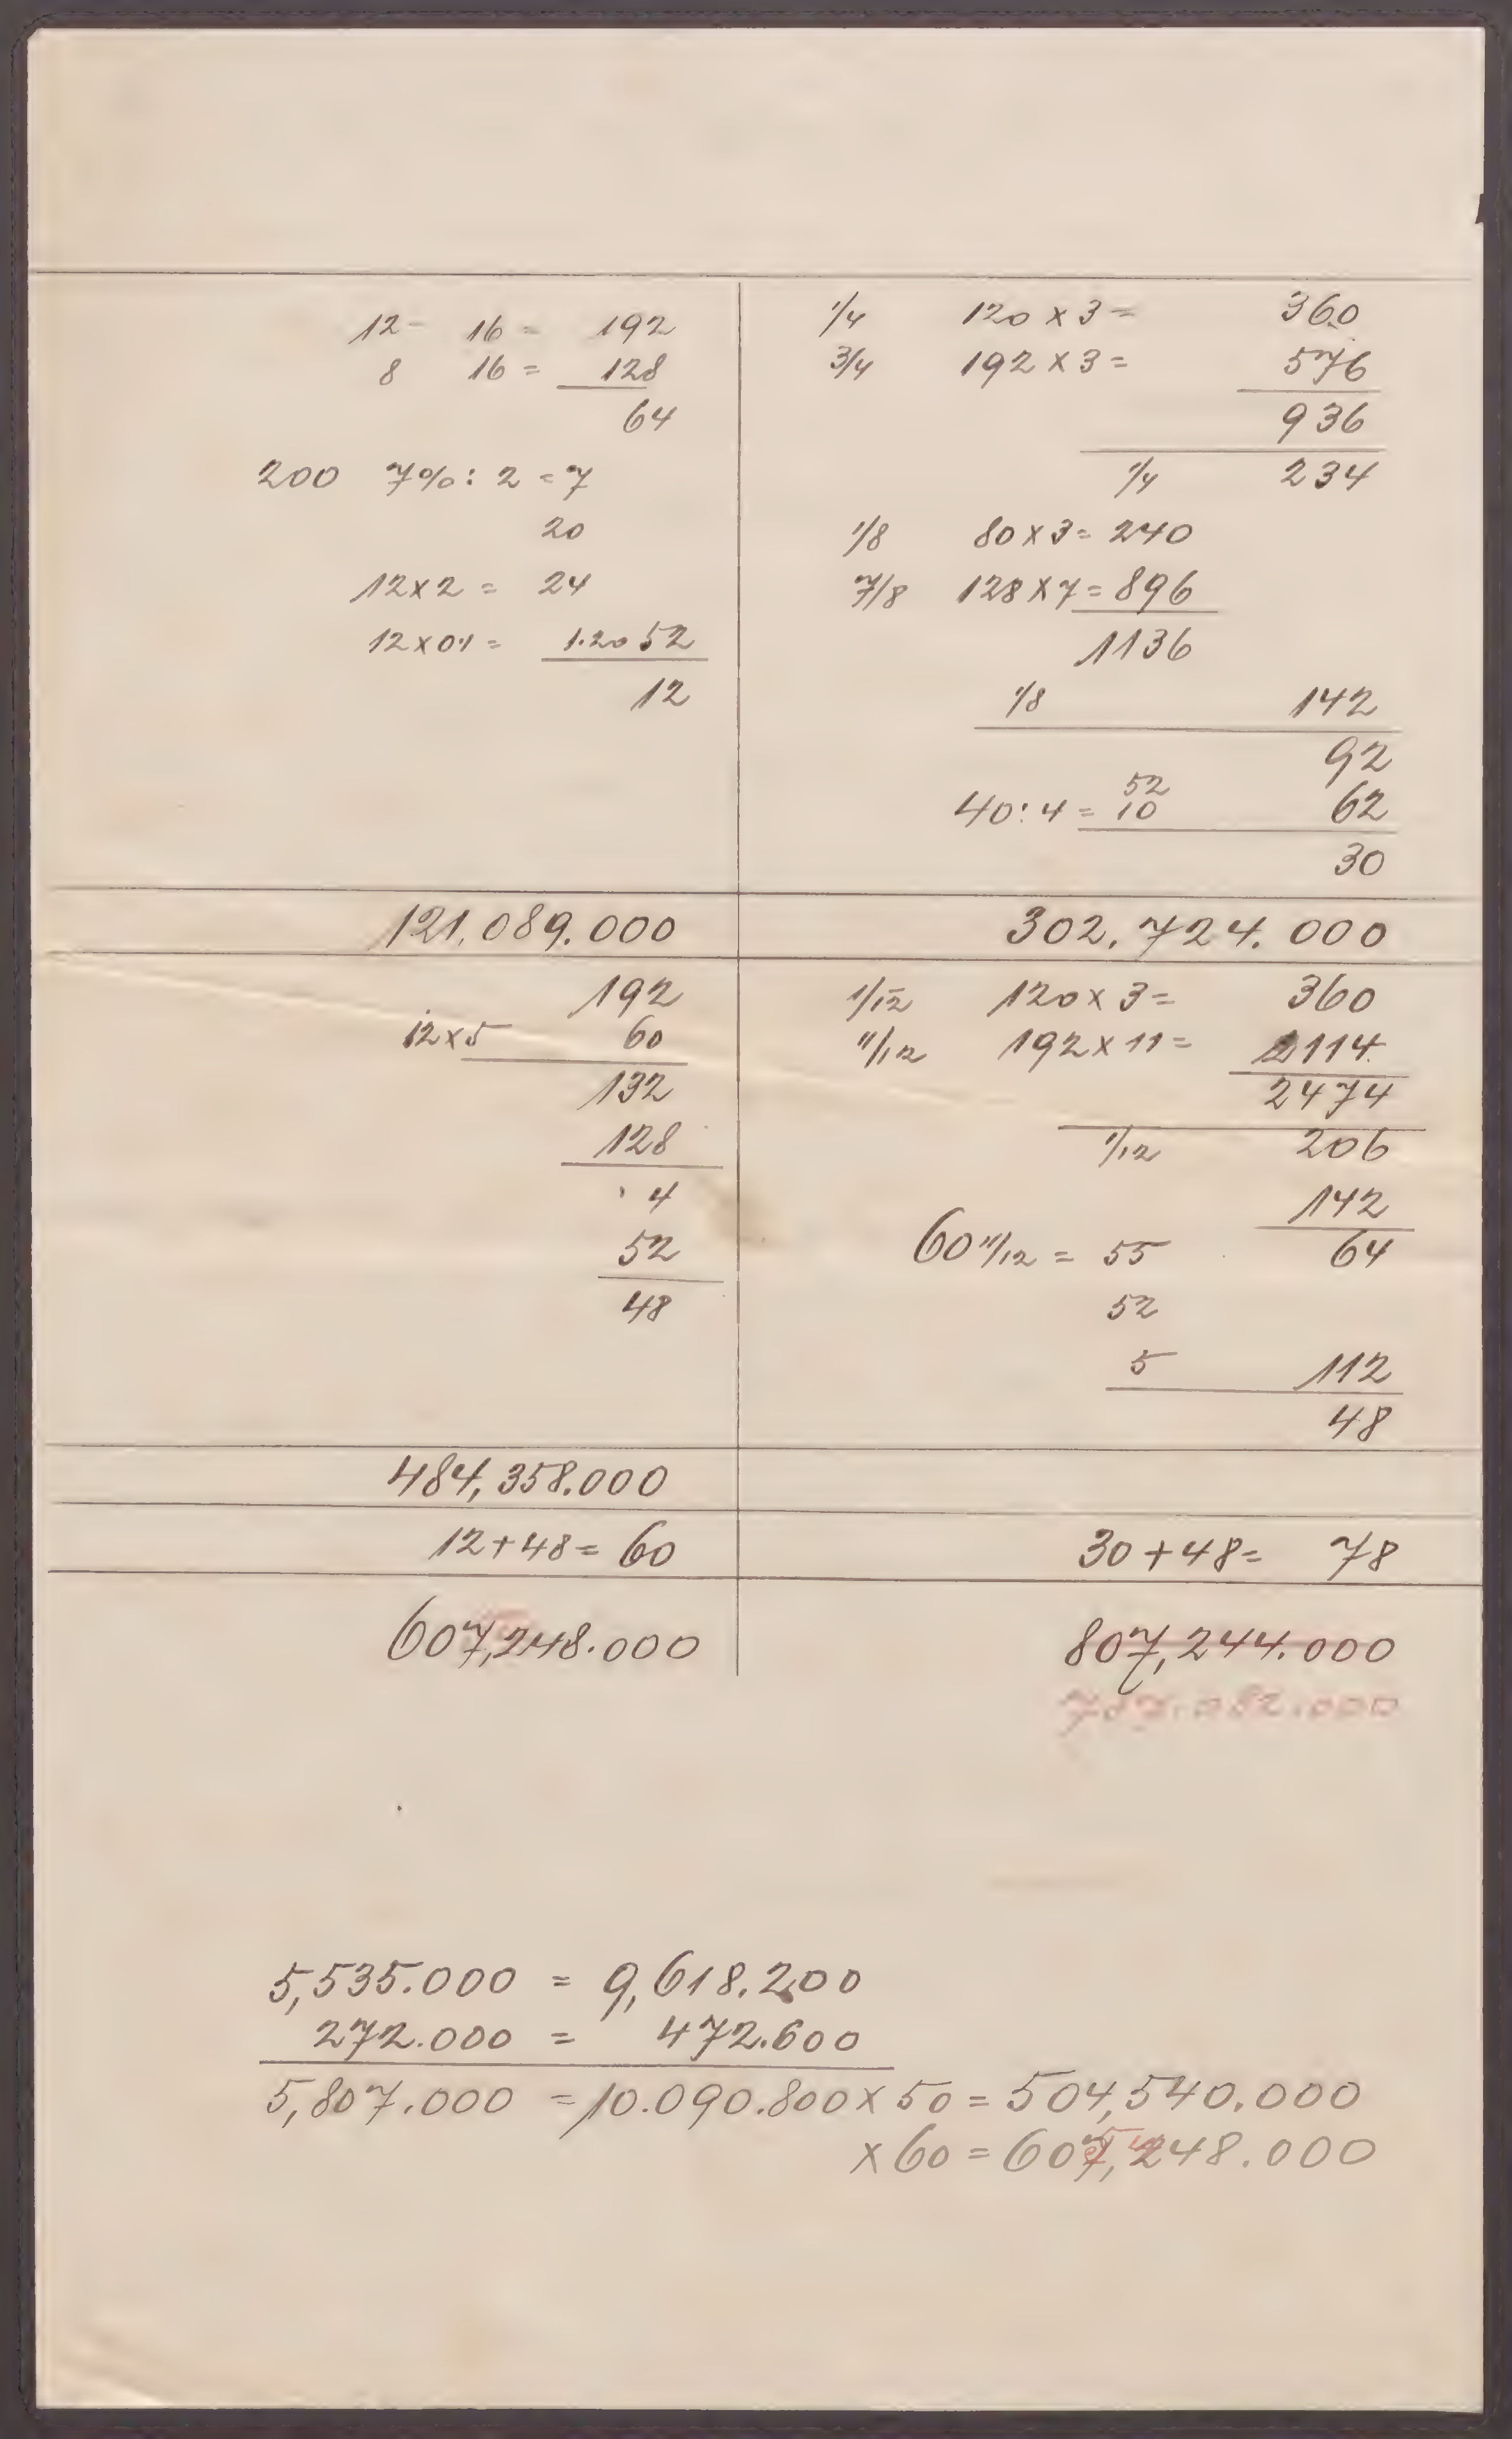 12 - 16 = 192
8 16 = 128
64
200 7% : 2 = 7
20
12 x 2 = 24
12 x 0,1 = 1.20 52
12
1/4 120 x 3 = 360
3/4 192 x 3 = 576
936
1/4 234
1/8 80 x 3 = 240
7/8 128 x 7 = 896
1136
1/8 142
92
52
40 : 4 = 10 62
30
121,089.000
302,724.000
192
12 x 5 60
132
128
4
52
48
1/12 120 x 3 = 360
11/12 192 x 11 = 2114
2474
1/12 206
142
60 11/12 = 55 64
52
5 112
48
484,358.000
12 + 48 = 60
30 + 48 = 78
607,248.000
807,244.000
787.082.000
5,535.000 = 9,618.200
272.000 = 472.600
5,807.000 = 10.090.800 x 50 = 504,540.000
x 60 = 607,248.000